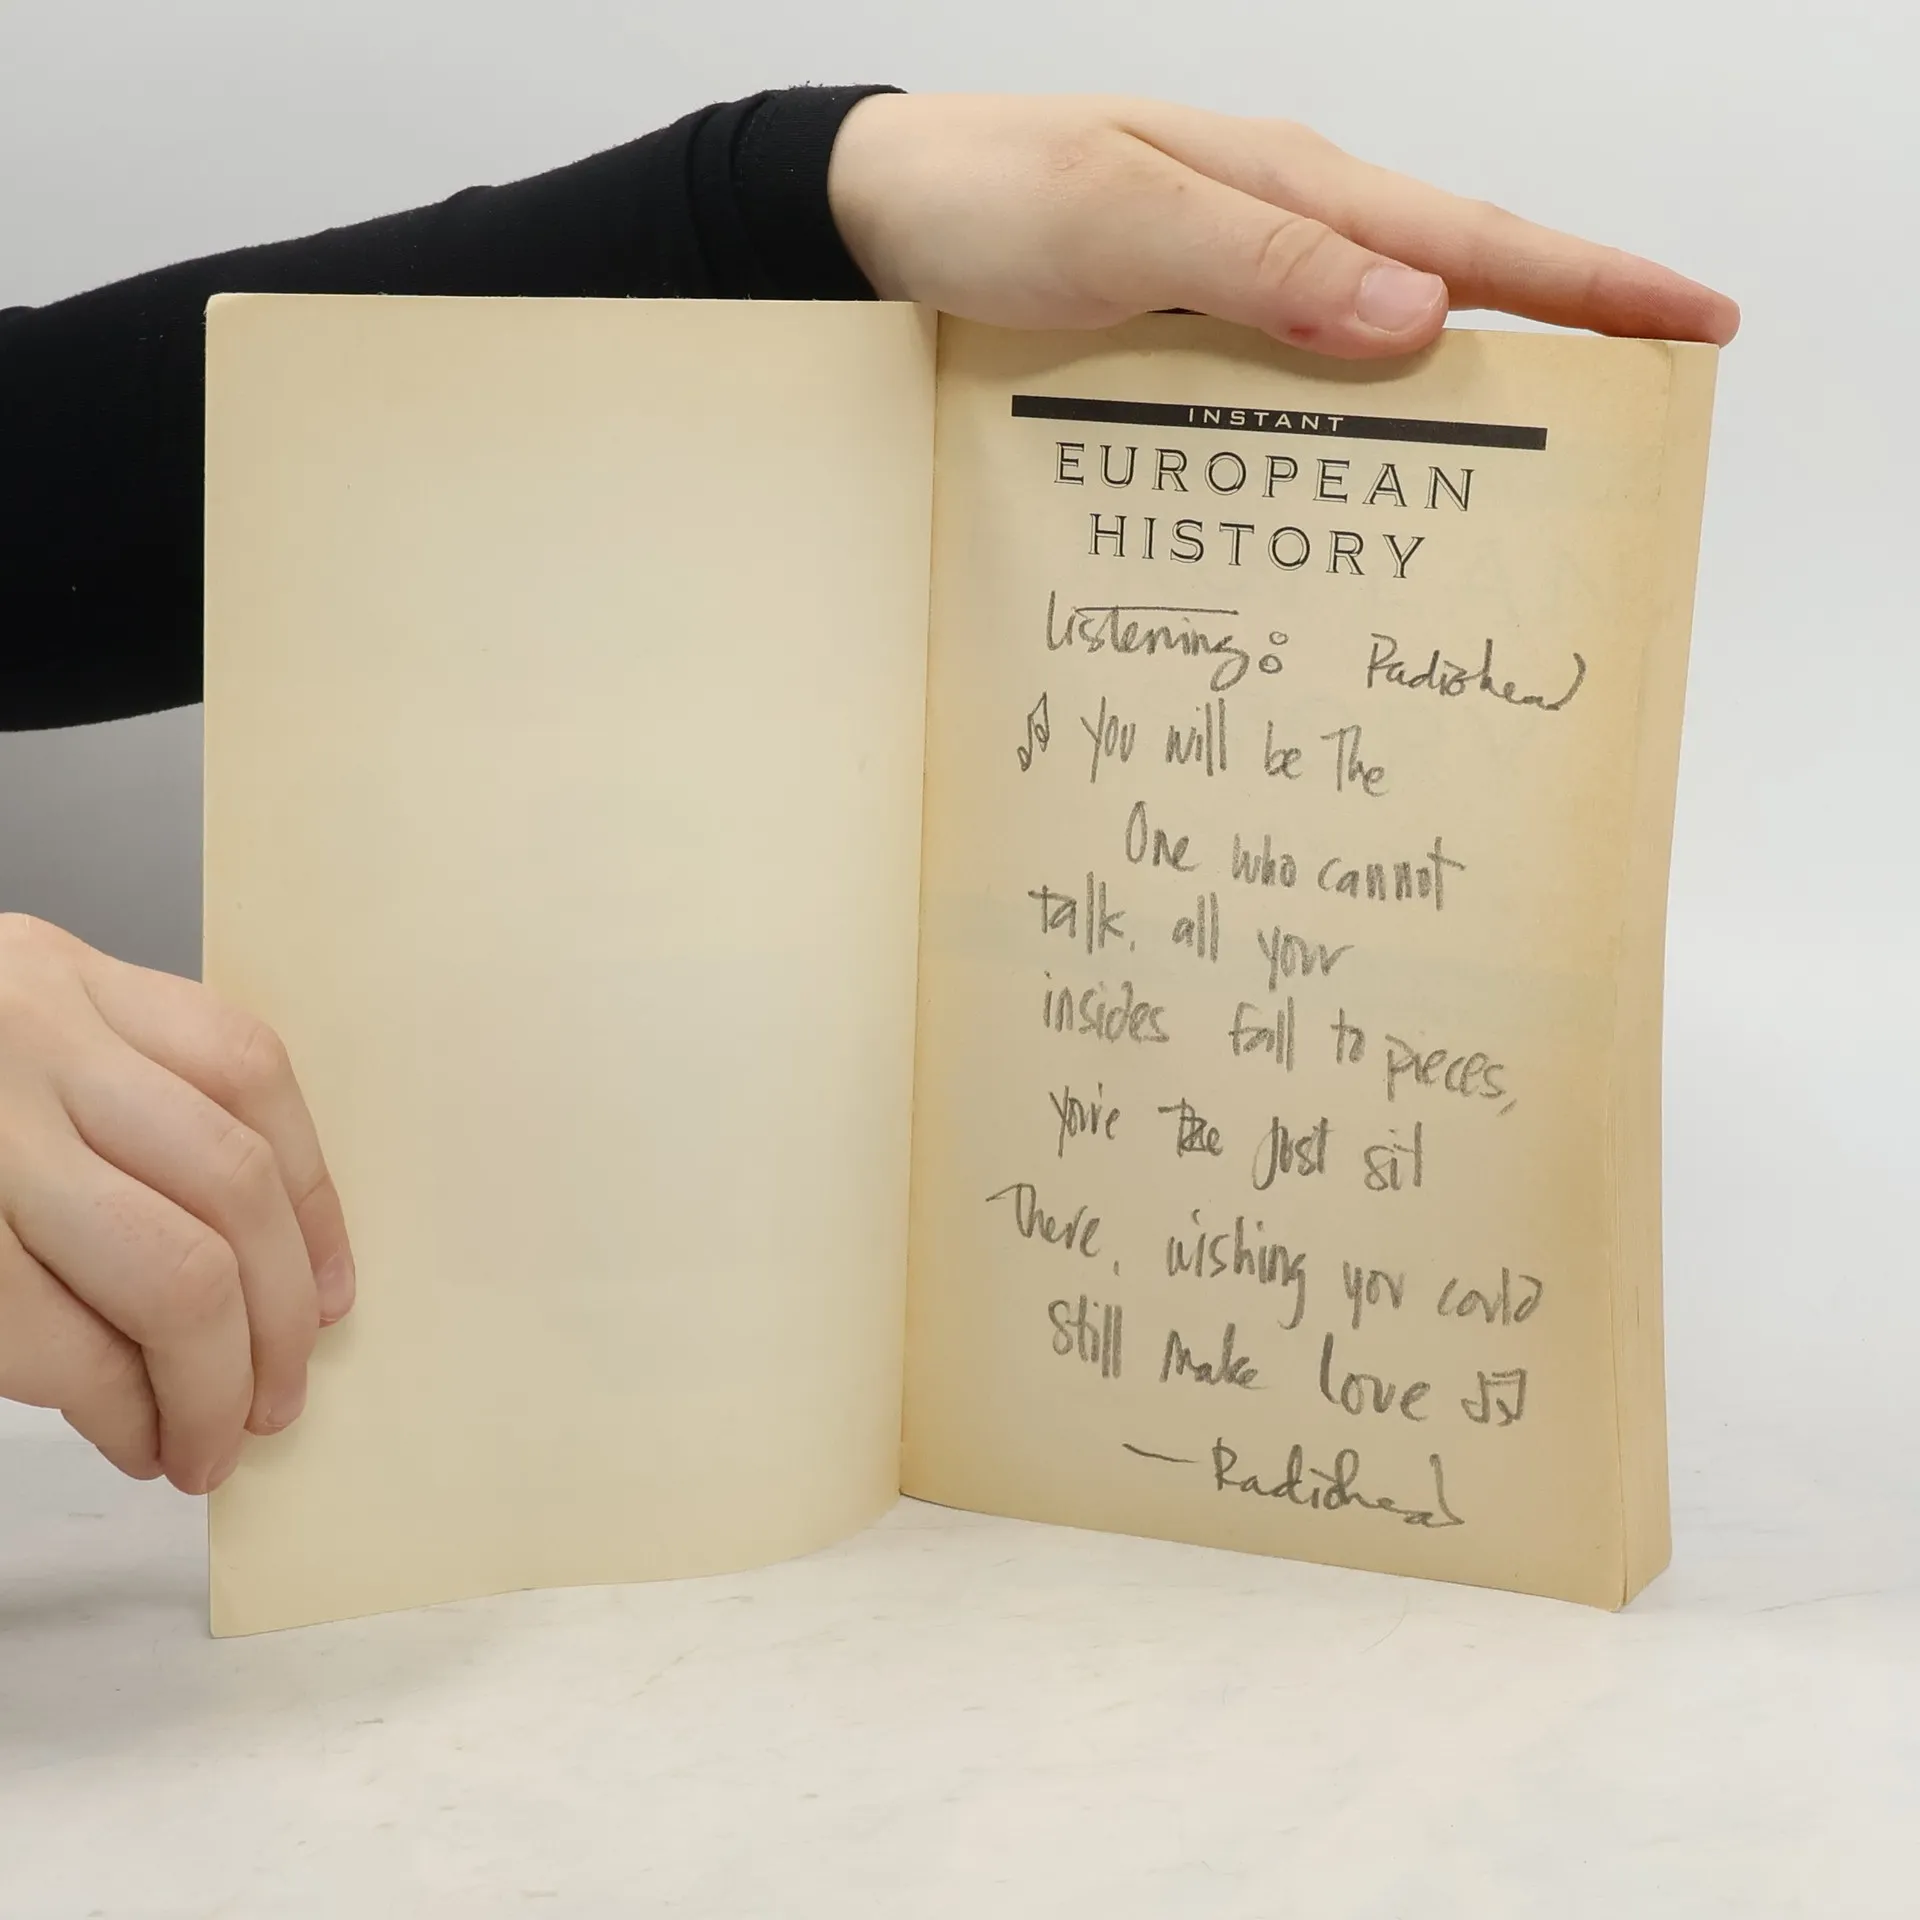 INSTANT
EUROPEAN
HISTORY
Listening: Radiohead
♫ you will be The
One who cannot
talk, all your
insides fall to pieces,
you're the just sit
There, wishing you could
still make love ♫
— Radiohead